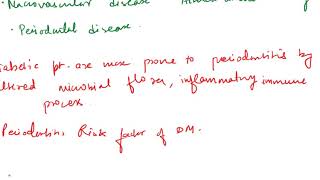 · Macrovascular disease
· Periodontal disease.
iabetic pt. are more prone to periodontitis by
ltered microbial flora, inflammatory immune
process.
Periodontitis Risk factor of DM.